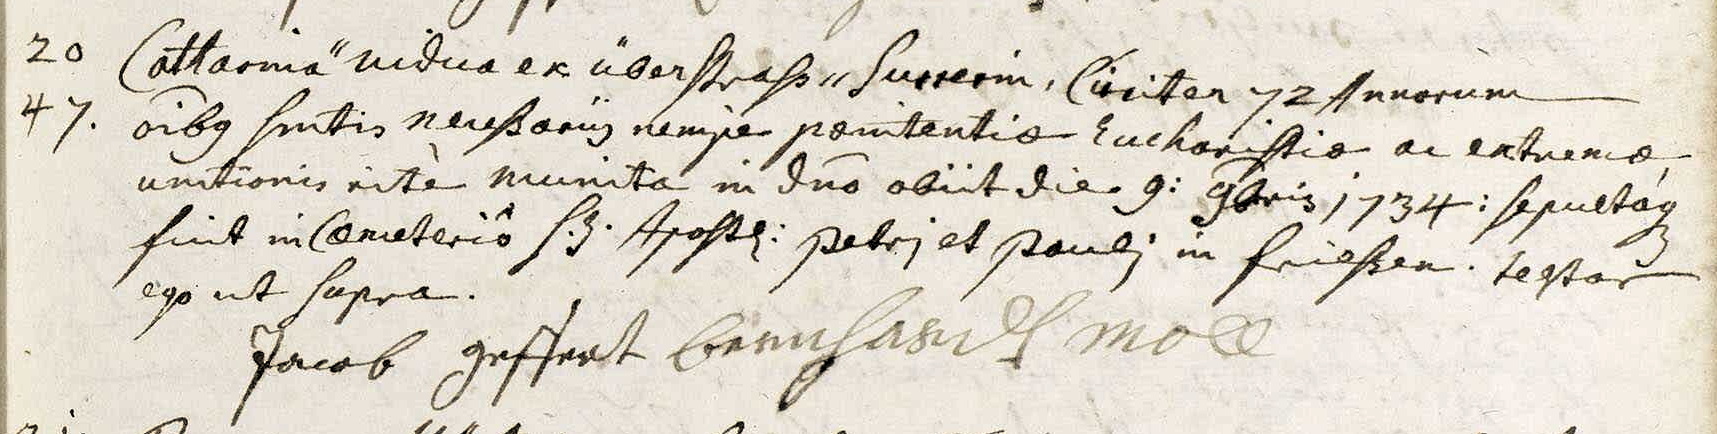 20 Catharina vidua ex überstrass Surrerin, Circiter 72 Annorum
47. oibg Smtis necessarijs nempe pœnitentiæ Eucharistiæ ac extremæ
unctionis ritè munita in Dño obiit die 9: 9bris 1734: sepultáq
fuit in Cæmeteriô S.S. Apostl: Petrj et Paulj in friessen. testor
ego ut supra.
Jacob geffert bernhardt moll